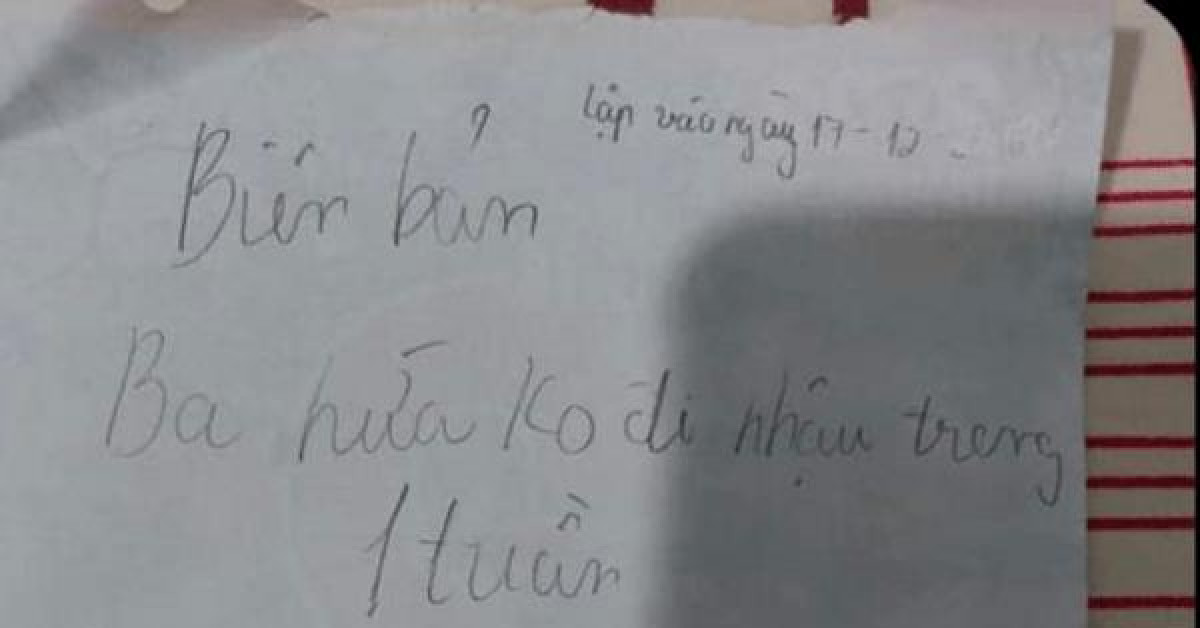 lập vào ngày 17-12
Biên bản
Ba hứa ko đi nhậu trong
1 tuần